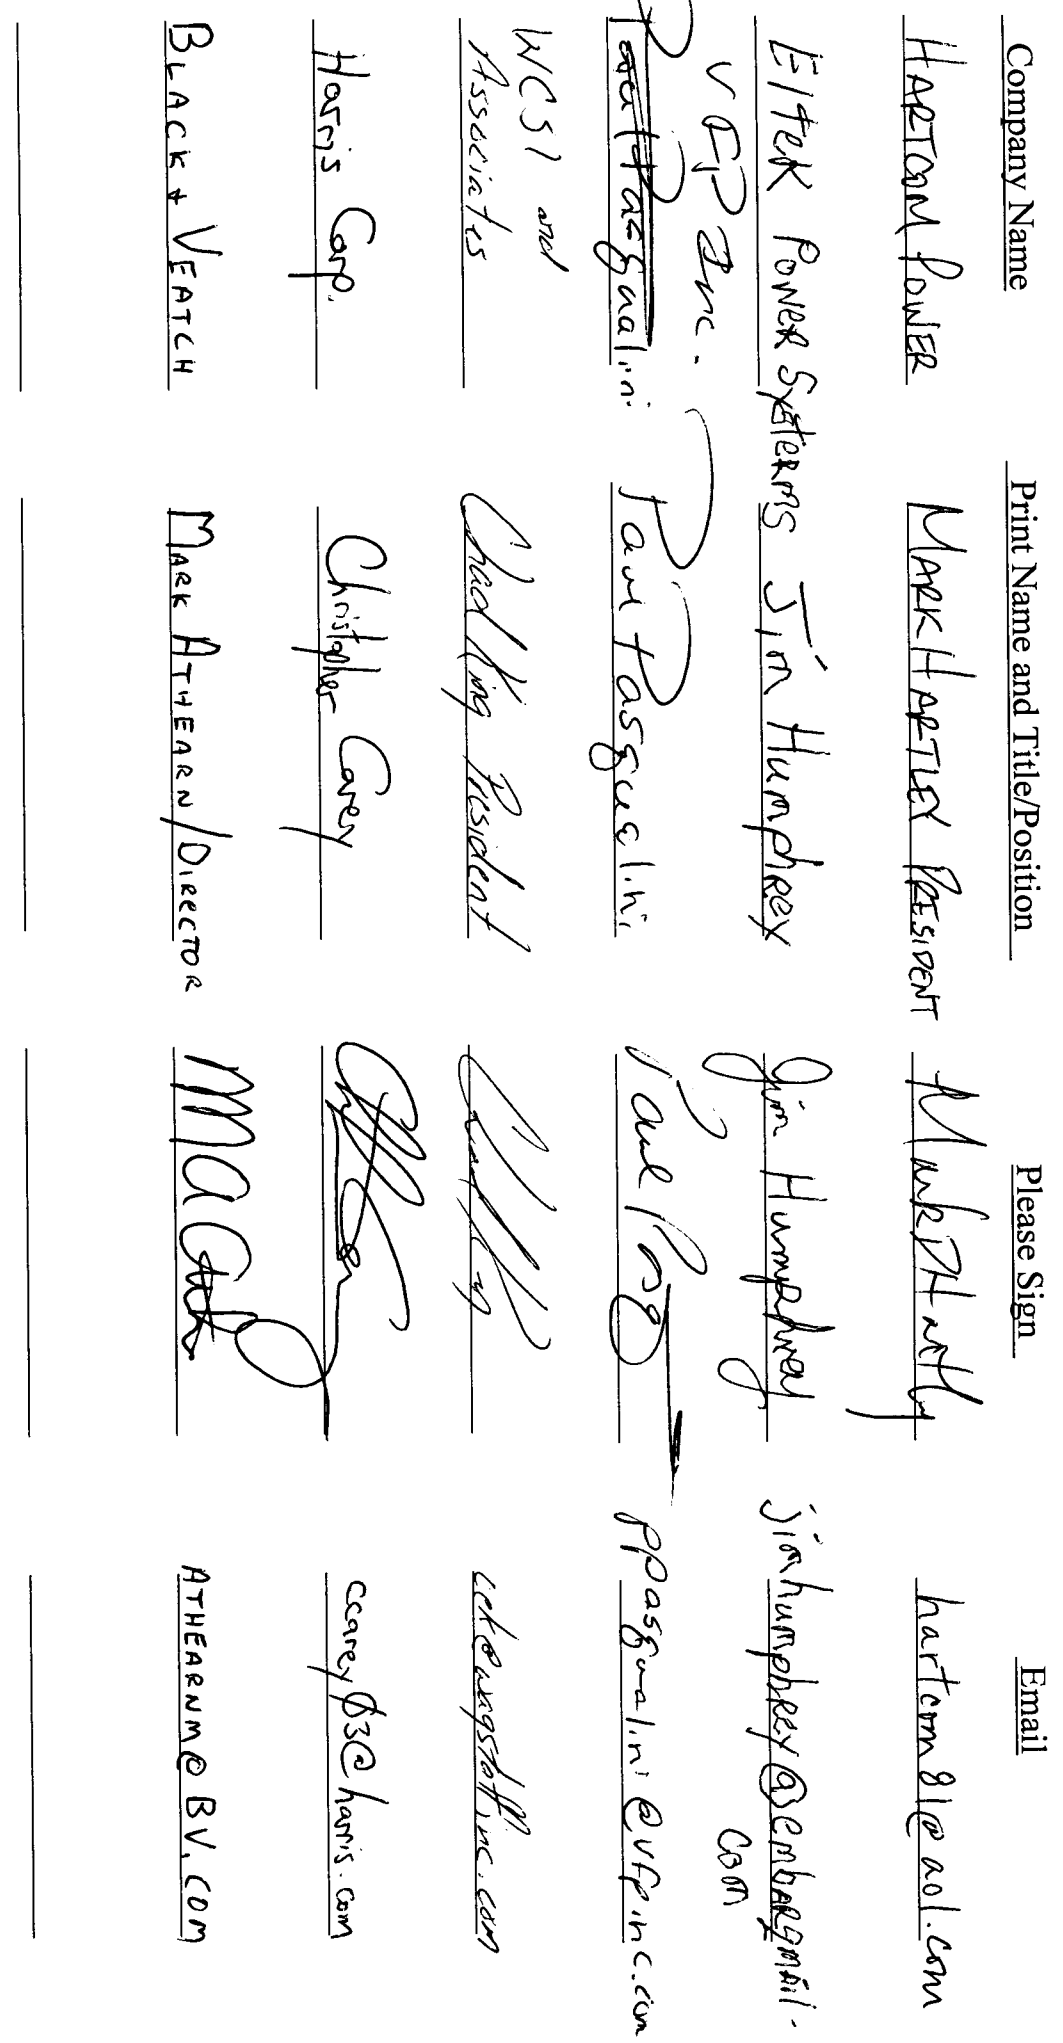 Company Name Print Name and Title/Position Please Sign Email
HARTCOM POWER MARK HARTLEY PRESIDENT hartcom81@aol.com
Eltek Power Systems Jim Humphrey Jim Humphrey jimhumphrey@embarqmail.
com
VFP Inc.
Paul Pasqualini Paul Pasqualini ppasqualini@vfpinc.com
WCSI and
Associates Chad King President cck@wagstaffinc.com
Harris Corp. Christopher Carey ccarey03@harris.com
BLACK & VEATCH MARK ATHEARN/DIRECTOR ATHEARNM@BV.COM